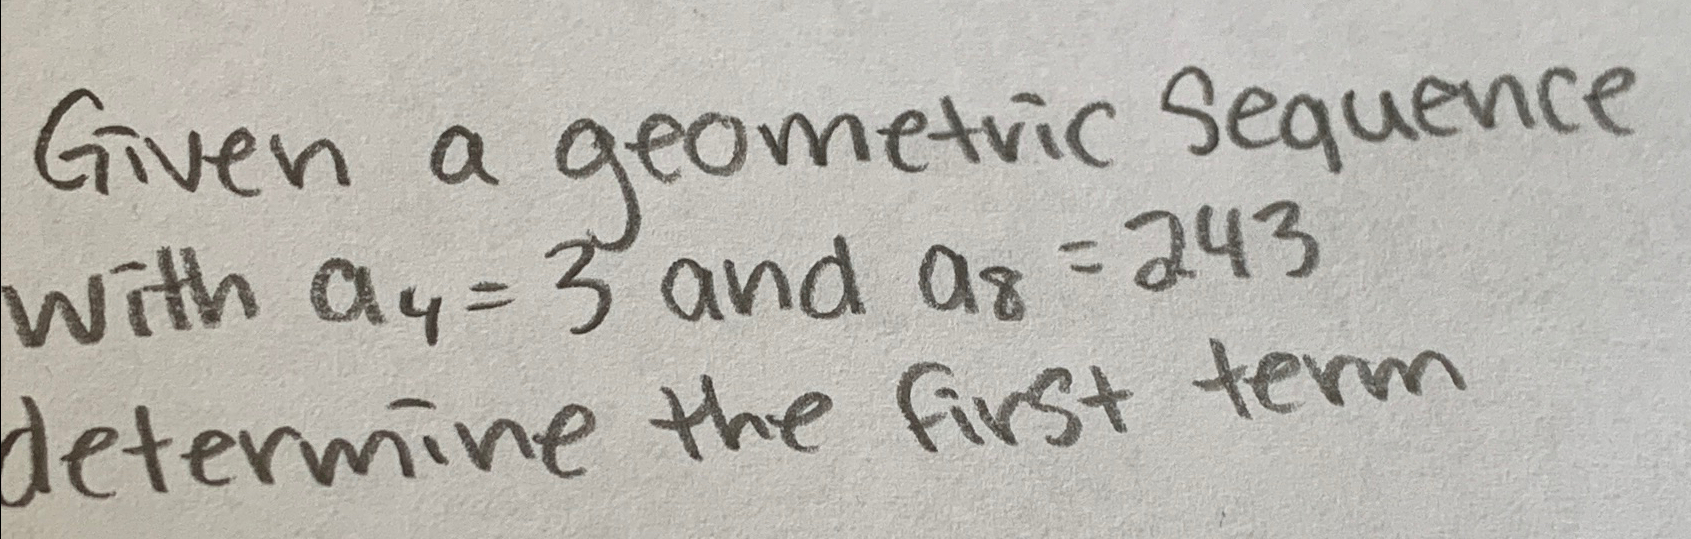 Given a geometric sequence
with a₄ = 3 and a₈ = 243
determine the first term